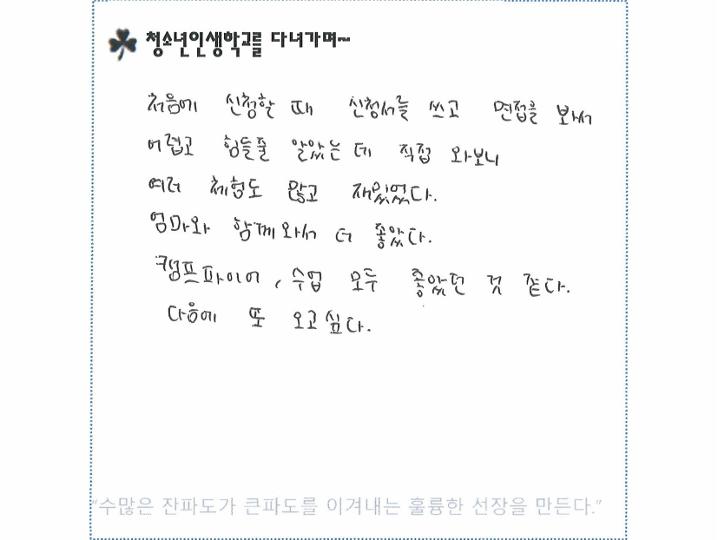 청소년인생학교를 다녀가며~
처음에 신청할 때 신청서를 쓰고 면접을 보셔
어렵고 힘들줄 알았는데 직접 와보니
여러 체험도 많고 재밌었다.
엄마와 함께와서 더 좋았다.
캠프파이어, 수업 모두 좋았던 것 같다.
다음에 또 오고싶다.
"수많은 잔파도가 큰파도를 이겨내는 훌륭한 선장을 만든다."